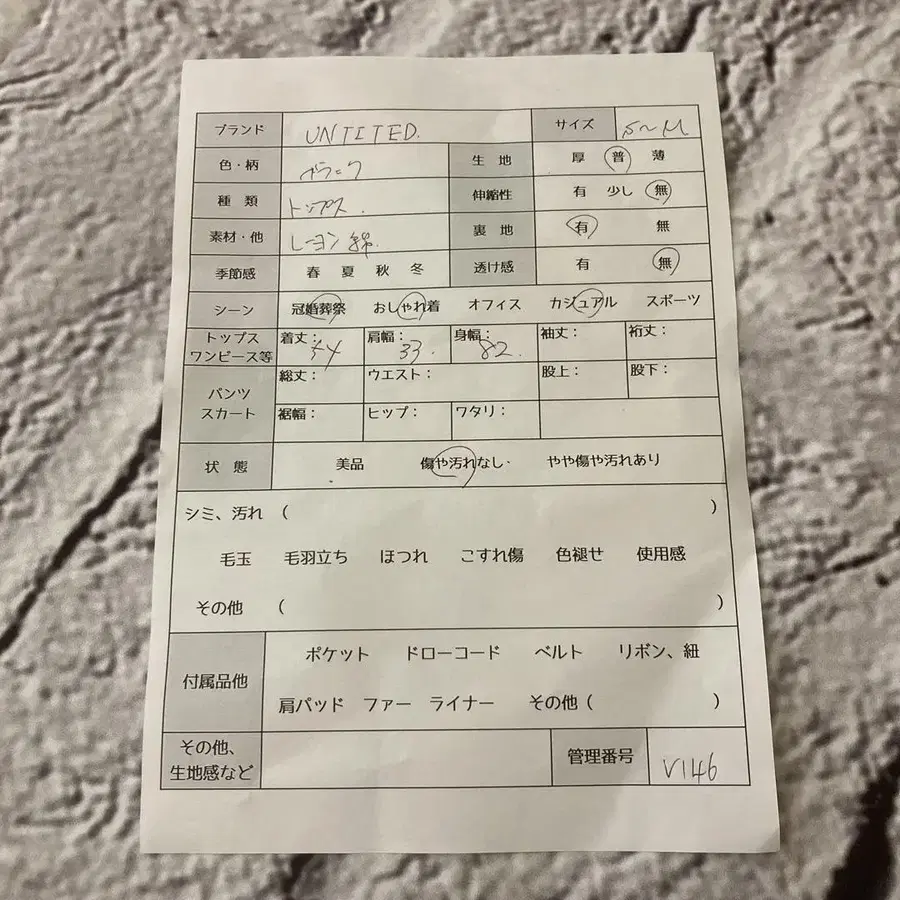 ブランド UNTITED. サイズ S~M
色・柄 ブラック 生地 厚 普 薄
種類 トップス. 伸縮性 有 少し 無
素材・他 レーヨン 綿. 裏地 有 無
季節感 春 夏 秋 冬 透け感 有 無
シーン 冠婚葬祭 おしゃれ着 オフィス カジュアル スポーツ
トップス ワンピース等 着丈: 54 肩幅: 33. 身幅: 82. 袖丈: 裄丈:
パンツ スカート 総丈: ウエスト: 股上: 股下:
裾幅: ヒップ: ワタリ:
状態 美品 傷や汚れなし やや傷や汚れあり
シミ、汚れ ( )
毛玉 毛羽立ち ほつれ こすれ傷 色褪せ 使用感
その他 ( )
付属品他 ポケット ドローコード ベルト リボン、紐
肩パッド ファー ライナー その他 ( )
その他、
生地感など 管理番号 V146